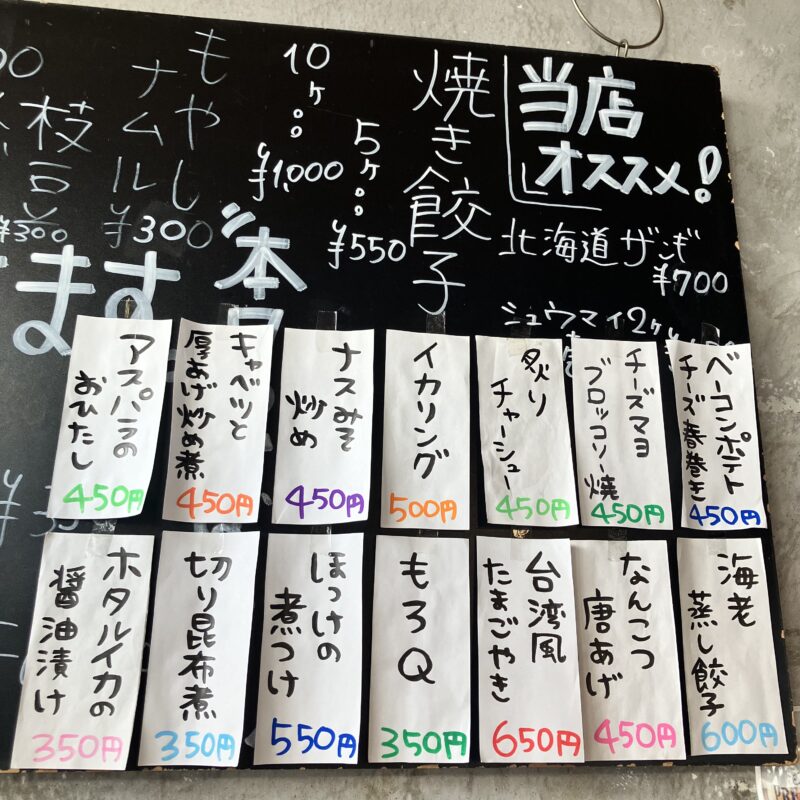 当店
オススメ!
北海道ザンギ
¥700
シュウマイ2ケ
焼き餃子
5ケ。。
¥550
10ケ。。
¥1,000
もやし
ナムル
¥300
枝豆
¥300
本日
ます
ベーコンポテト
チーズ春巻き
450円
チーズマヨ
ブロッコリー焼
450円
炙り
チャーシュー
450円
イカリング
500円
ナスみそ
炒め
450円
キャベツと
厚あげ炒め煮
450円
アスパラの
おひたし
450円
海老
蒸し餃子
600円
なんこつ
唐あげ
450円
台湾風
たまごやき
650円
もろQ
350円
ほっけの
煮つけ
550円
切り昆布煮
350円
ホタルイカの
醤油漬け
350円